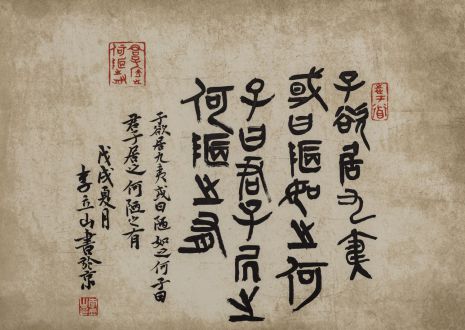 子欲居九夷
或曰陋如之何
子曰君子居之
何陋之有
子欲居九夷或曰陋如之何子曰
君子居之何陋之有
戊戌夏月
李立山書於京
君子居之
何陋之有